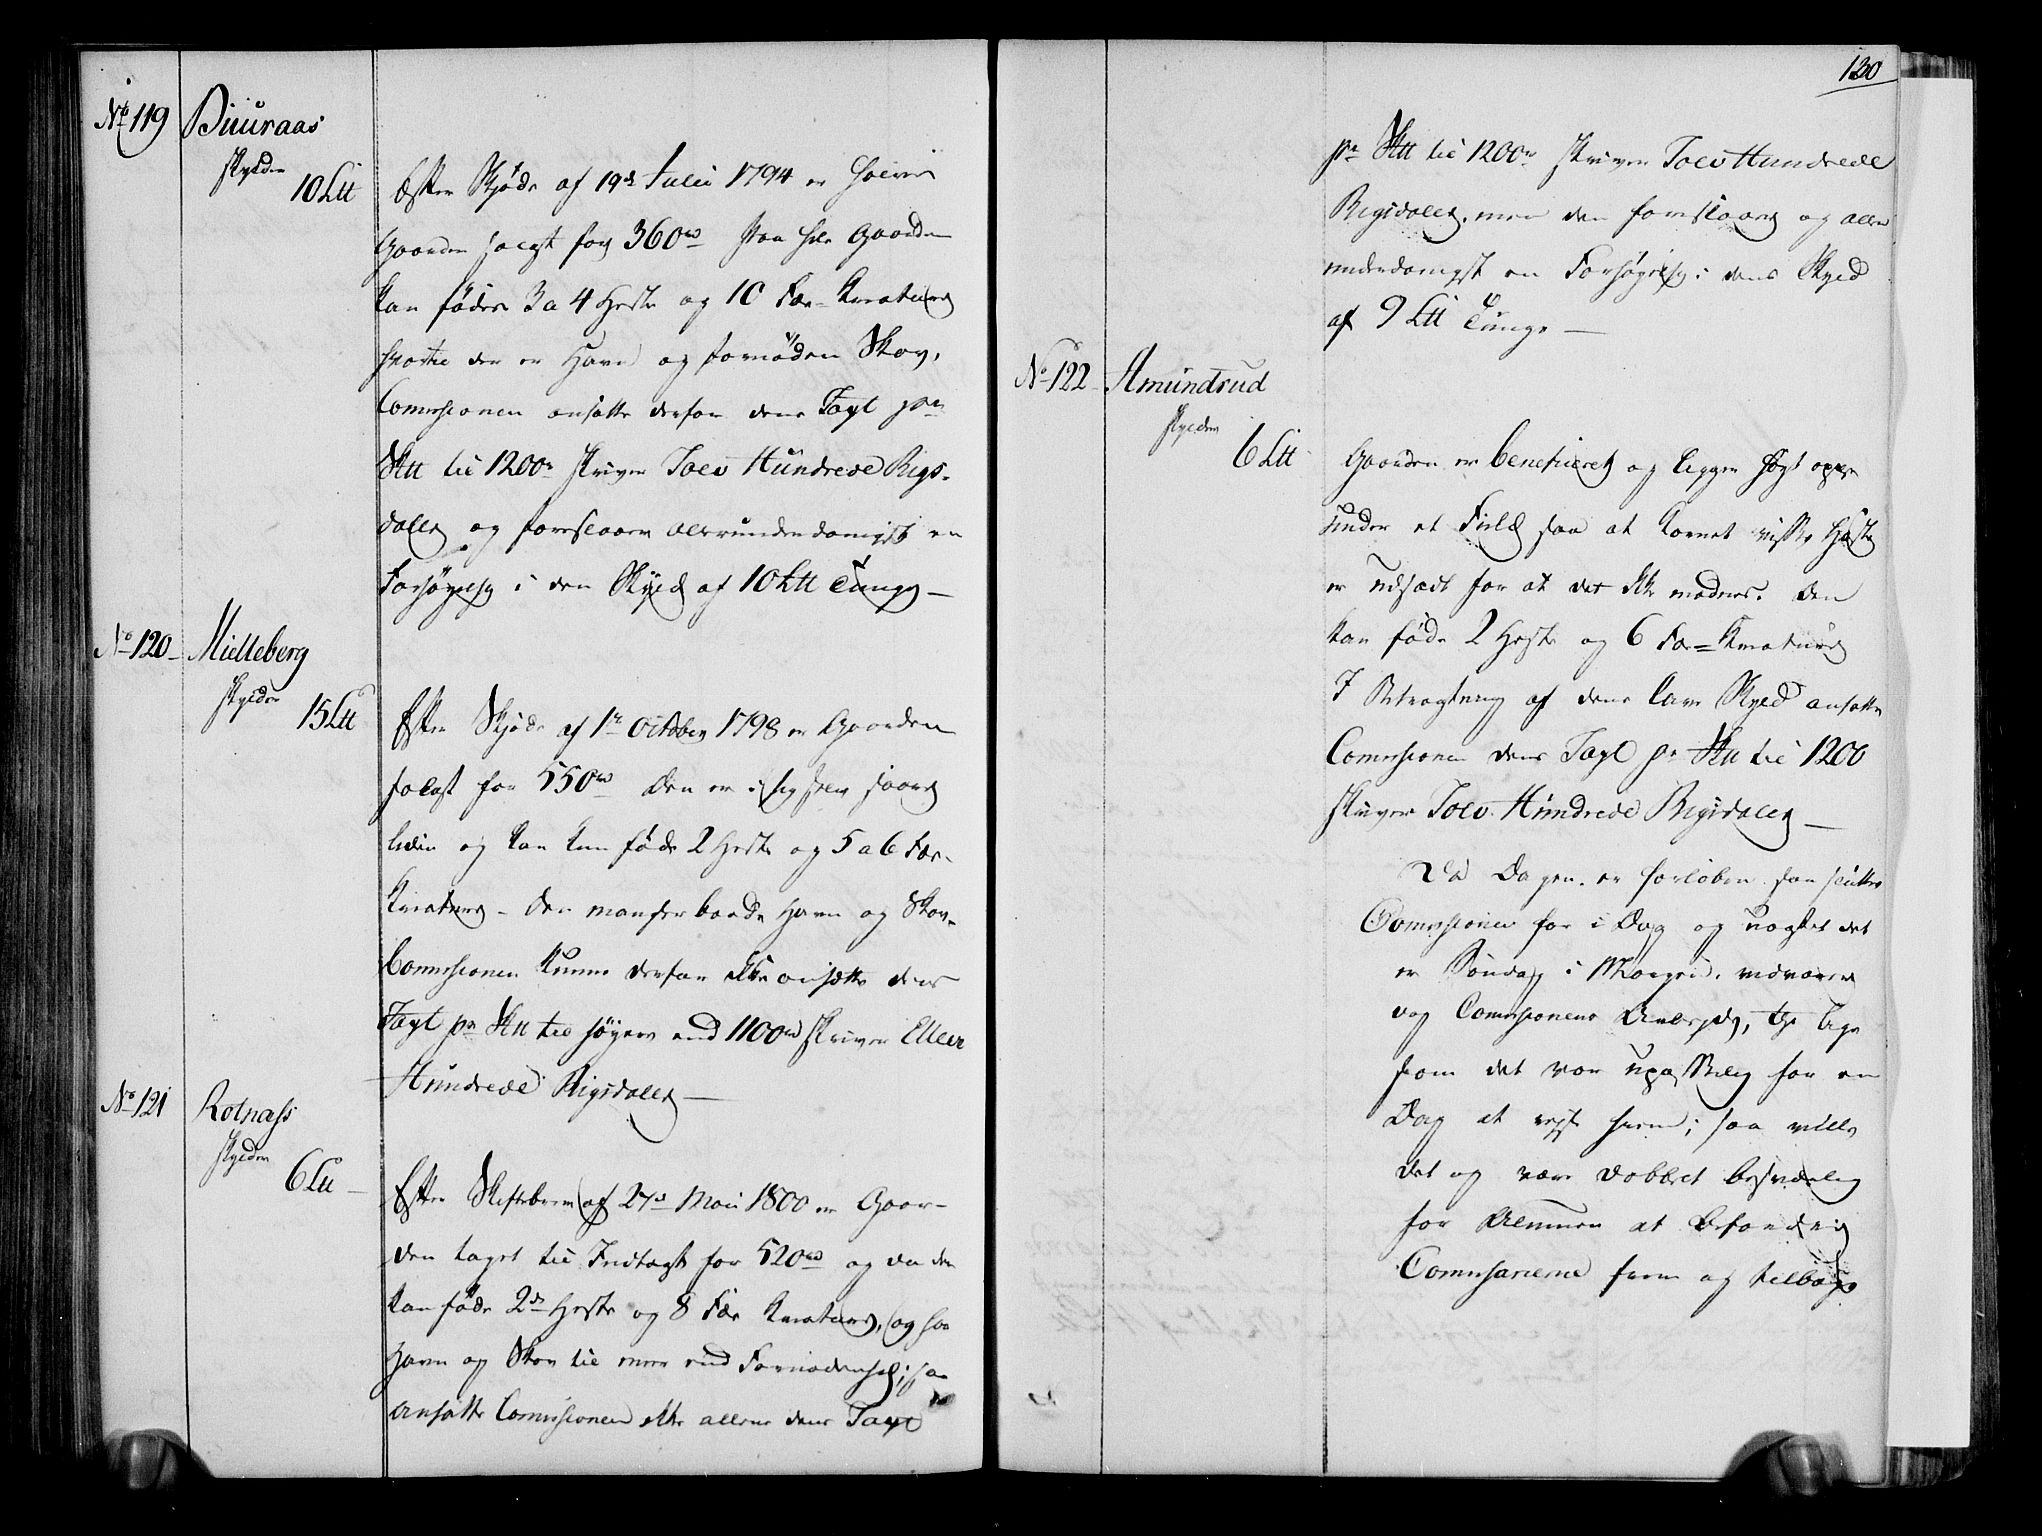 No 119
Buuraas
skylder
10 Ltt
Efter Skjøde af 19de Julii 1794 er halve
Gaarden solgt for 360rd paa hele Gaarden
kan fødes 3 a 4 Heste og 10 Fæe-Kreature
hvortil der er Havn og fornøden Skov,
Comissionen ansatte derfor dens Taxt pr
Sktt til 1200r skriver Tolv Hundrede Rigs-
daler og foreslaaer allerunderdanigst en
Forhøyelse i den Skyld af 10 Ltt Tunge —
No 120
Mielleberg
skylder
15 Ltt
Efter Skjøde af 1te October 1798 er Gaarden
solgt for 550rd Den er i sig selv
liden og kan kun føde 2 Heste og 5 a 6 Fæe-
Kreature - Den mangler baade Havn og Skov-
Comissionen kunne derfor ikke ansætte dens
Taxt pr Sktt til høyere end 1100rd skriver Elleve
Hundrede Rigsdaler —
No 121
Rolnæss
skylder
6 Ltt
Efter Skiftebrev af 27de Mai 1800 er Gaar-
den taget til Indtægt for 520rd og da den
kan føde 2de Heste og 8 Fæe Kreature, og har
Havn og Skov til mere end Fornødenhed; saa
ansatte Comissionen efter alles dens Taxt
130
pr Sktt til 1200r skriver Tolv Hundrede
Rigsdaler, men den foreslaaes og aller
underdanigst en Forhøyelse i dens Skyld
af 9 Ltt Tunge —
No 122
Amundsrud
skylder
6 Ltt
Gaarden er beneficeret og ligger høyt oppe
under et Field saa at Kornet visse Høste
er udsadt for at det ikke modnes. Den
kan føde 2 Heste og 6 Fæe-Kreature
I Betragtning af dens lave Skyld ansatte
Comissionen dens Taxt pr Sktt til 1200
skriver Tolv Hundrede Rigsdaler —
Da Dagen er forløben saa slutter
Comissionen for i Dag og uagtet det
er Søndag i Morgen,
dog Comissionens Arbeyde, thi lige
som det var upasselig for en
Dag at reyse hiem; saa ville
det og være dobbelt besværlig
for Almuen at befordre
Comissarierne frem og tilbage